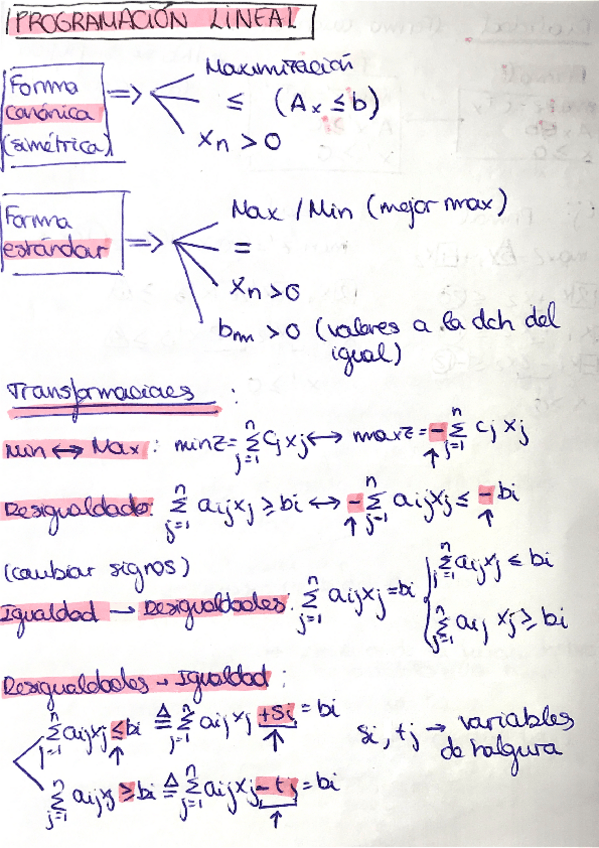 PROGRAMACIÓN LINEAL
Forma canónica (simétrica) =>
Maximización
≤ (Ax ≤ b)
xn > 0
Forma estándar =>
Max / Min (mejor max)
=
xn > 0
bm > 0 (valores a la dch del igual)
Transformaciones :
Min ↔ Max : min z = ∑_{j=1}^{n} cj xj ↔ max z = - ∑_{j=1}^{n} cj xj
Desigualdades: ∑_{j=1}^{n} aij xj ≥ bi ↔ - ∑_{j=1}^{n} aij xj ≤ - bi
(cambiar signos)
Igualdad → Desigualdades: ∑_{j=1}^{n} aij xj = bi { ∑_{j=1}^{n} aij xj ≤ bi
∑_{j=1}^{n} aij xj ≥ bi
Desigualdades → Igualdad :
∑_{j=1}^{n} aij xj ≤ bi ≜ ∑_{j=1}^{n} aij xj + si = bi
∑_{j=1}^{n} aij xj ≥ bi ≜ ∑_{j=1}^{n} aij xj - tj = bi
si, tj → variables de holgura